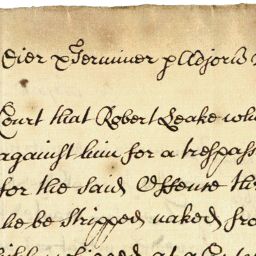 Oier & Terminer p Adjorn
Court that Robert Leake who
against him for a trespass
for the said Offence th
he be stripped naked fro
at a